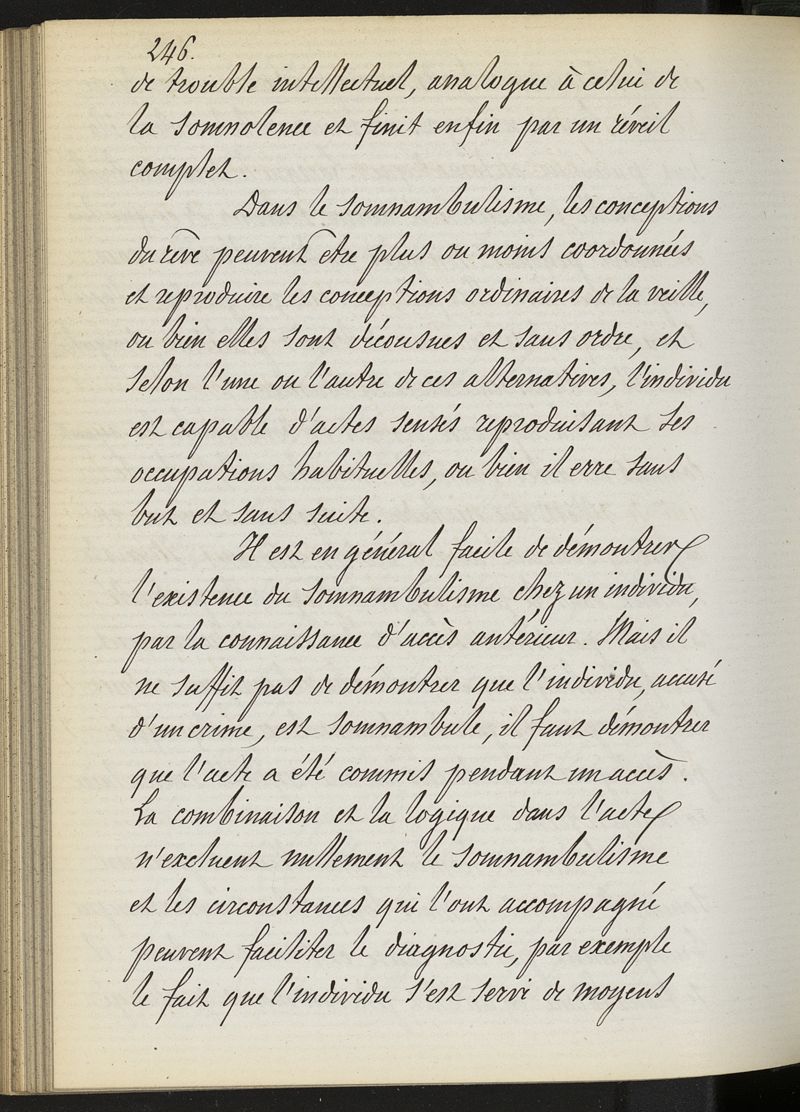 246.
de trouble intellectuel, analogue à celui de
la somnolence et finit enfin par un réveil
complet.
Dans le somnambulisme, les conceptions
du rêve peuvent être plus ou moins coordonnées
et reproduire les conceptions ordinaires de la veille,
ou bien elles sont décousues et sans ordre, et
selon l'une ou l'autre de ces alternatives, l'individu
est capable d'actes sensés reproduisant ses
occupations habituelles, ou bien il erre sans
but et sans suite.
Il est en général facile de démontrer
l'existence du somnambulisme chez un individu,
par la connaissance d'accès antérieur. Mais il
ne suffit pas de démontrer que l'individu, accusé
d'un crime, est somnambule, il faut démontrer
que l'acte a été commis pendant un accès.
La combinaison et la logique dans l'acte
n'excluent nullement le somnambulisme
et les circonstances qui l'ont accompagné
peuvent faciliter le diagnostic, par exemple
le fait que l'individu s'est servi de moyens